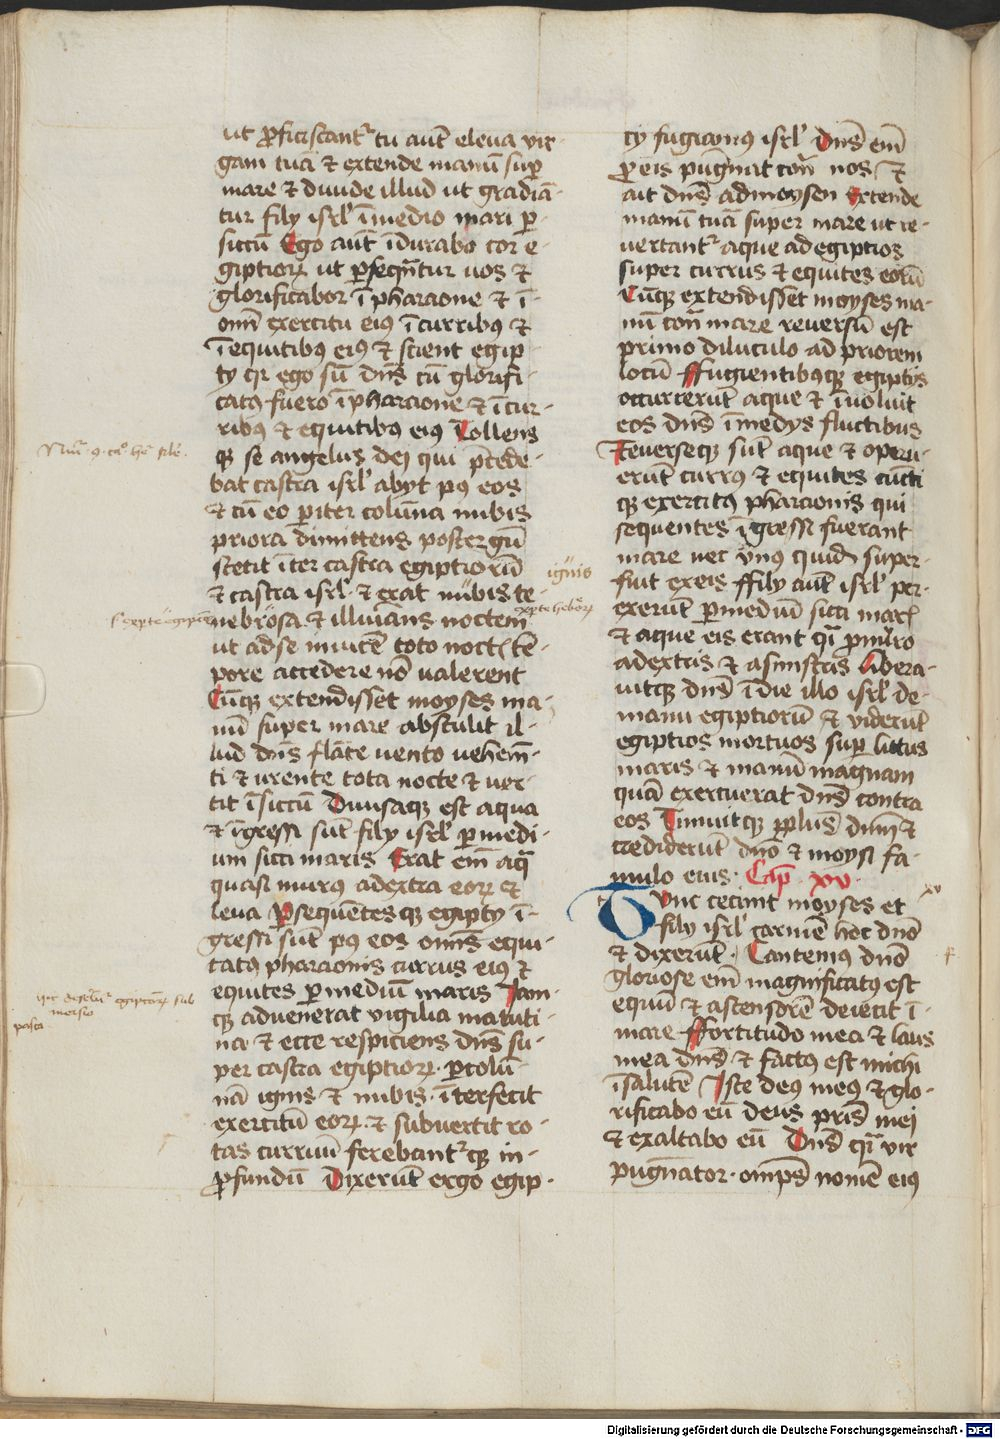 ut ꝓficiscant᷑ tu aut̄ eleua vir-
gam tuā ⁊ extende manū suꝑ
mare ⁊ diuide illud ut gradiā-
tur filij isrl̓ ī medio mari ꝑ
siccū Ego aut̄ īdurabo cor e-
giptioꝝ ut ꝑseqn̄tur uos ⁊
glorificabor ī pharaone ⁊ ī-
om̄i exercitu eiꝰ ī curribꝰ ⁊
ī equitibꝰ eiꝰ ⁊ scient egip-
tij qꝛ ego sū dn̄s cū glorifi-
catꝰ fuero ī pharaone ⁊ ī cur-
ribꝰ ⁊ equitibꝰ eiꝰ Tollens
qꝫ se angelus dej qui p̄cede-
bat castra isrl̓ abijt pꝰ eos
⁊ cū eo ꝑiter colūna nubis
priora dimittens post ergū
stetit īter castra egiptiorū
⁊ castra isrl̓ ⁊ erat nubis te-
nebrosa ⁊ illuīans noctem
ut ad se inuicē toto noctꝭ tē-
pore accedere nō ualerent
Cūqꝫ extendisset moyses ma-
nū super mare abstulit il-
lud dn̄s flāte uento uehemē-
ti ⁊ urente tota nocte ⁊ uer-
tit ī siccū Diuisaqꝫ est aqua
⁊ īgressi sūt filij isrl̓ ꝑ medi-
um sicci maris Erat em̄ aq̄
quasi murus a dextra eoꝝ et
leua ꝑsequētes qꝫ egiptij ī-
gressi sūt pꝰ eos om̄is equi-
tatꝰ pharaonis currus eiꝰ ⁊
equites ꝑ mediū maris Jam-
qꝫ aduenerat vigilia matuti-
na ⁊ ecce respiciens dn̄s su-
per castra egiptioꝝ ꝑ colū-
nā ignis ⁊ nubis īterfecit
exercitū eoꝝ ⁊ subuertit ro-
tas curruū ferebant᷑qꝫ in-
ꝓfundū Dixerūt ergo egip-
ignis
tij fugiamꝰ isrl̓ Dn̄s em̄
ꝓ eis pugnat cont̄ nos ⁊
ait dn̄s ad moysen Extende
manū tuā super mare ut re-
uertant᷑ aque ad egiptios
super currus ⁊ equites eorū
Cūqꝫ extendisset moyses ma-
nū cont̄ mare reuersū est
primo diluculo ad priorem
locū ffugientibꝰqꝫ egiptijs
occurrerūt aque ⁊ īuoluit
eos dn̄s ī medijs fluctibus
Reuerseqꝫ sūt aque ⁊ operu-
erūt currꝰ ⁊ equites cūcti
qꝫ exercitꝰ pharaonis qui
sequentes īgressi fuerant
mare nec vnꝰ quidē super-
fuit ex eis ffilij aut̄ isrl̓ per-
rexerūt ꝑ mediū sicci marꝭ
⁊ aque eis erant q̄i ꝓ muro
a dextris ⁊ a sinistris Libera-
uitqꝫ dn̄s ī die illo isrl̓ de-
manu egiptiorū ⁊ viderūt
egiptios mortuos suꝑ littus
maris ⁊ manū magnam
quā exercuerat dn̄s contra
eos Timuitqꝫ ppl̓us dn̄m ⁊
crediderūt dn̄o ⁊ moysi fa-
mulo eius. Cap̄ xv.
xv
Tunc cecinit moyses et
filij isrl̓ carmē hoc dn̄o
⁊ dixerūt. Cantemꝰ dn̄o
gloriose em̄ magnificatꝰ est
equū ⁊ ascensorē deiecit ī-
mare ffortitudo mea ⁊ laus
mea dn̄s ⁊ factꝰ est michi
ī salutē Jste deꝰ meꝰ ⁊ glo-
rificabo eū deus pr̄is mej
⁊ exaltabo eū Dn̄s q̄i vir
pugnator. om̄ps nomē eiꝰ
Digitalisierung gefördert durch die Deutsche Forschungsgemeinschaft - DFG